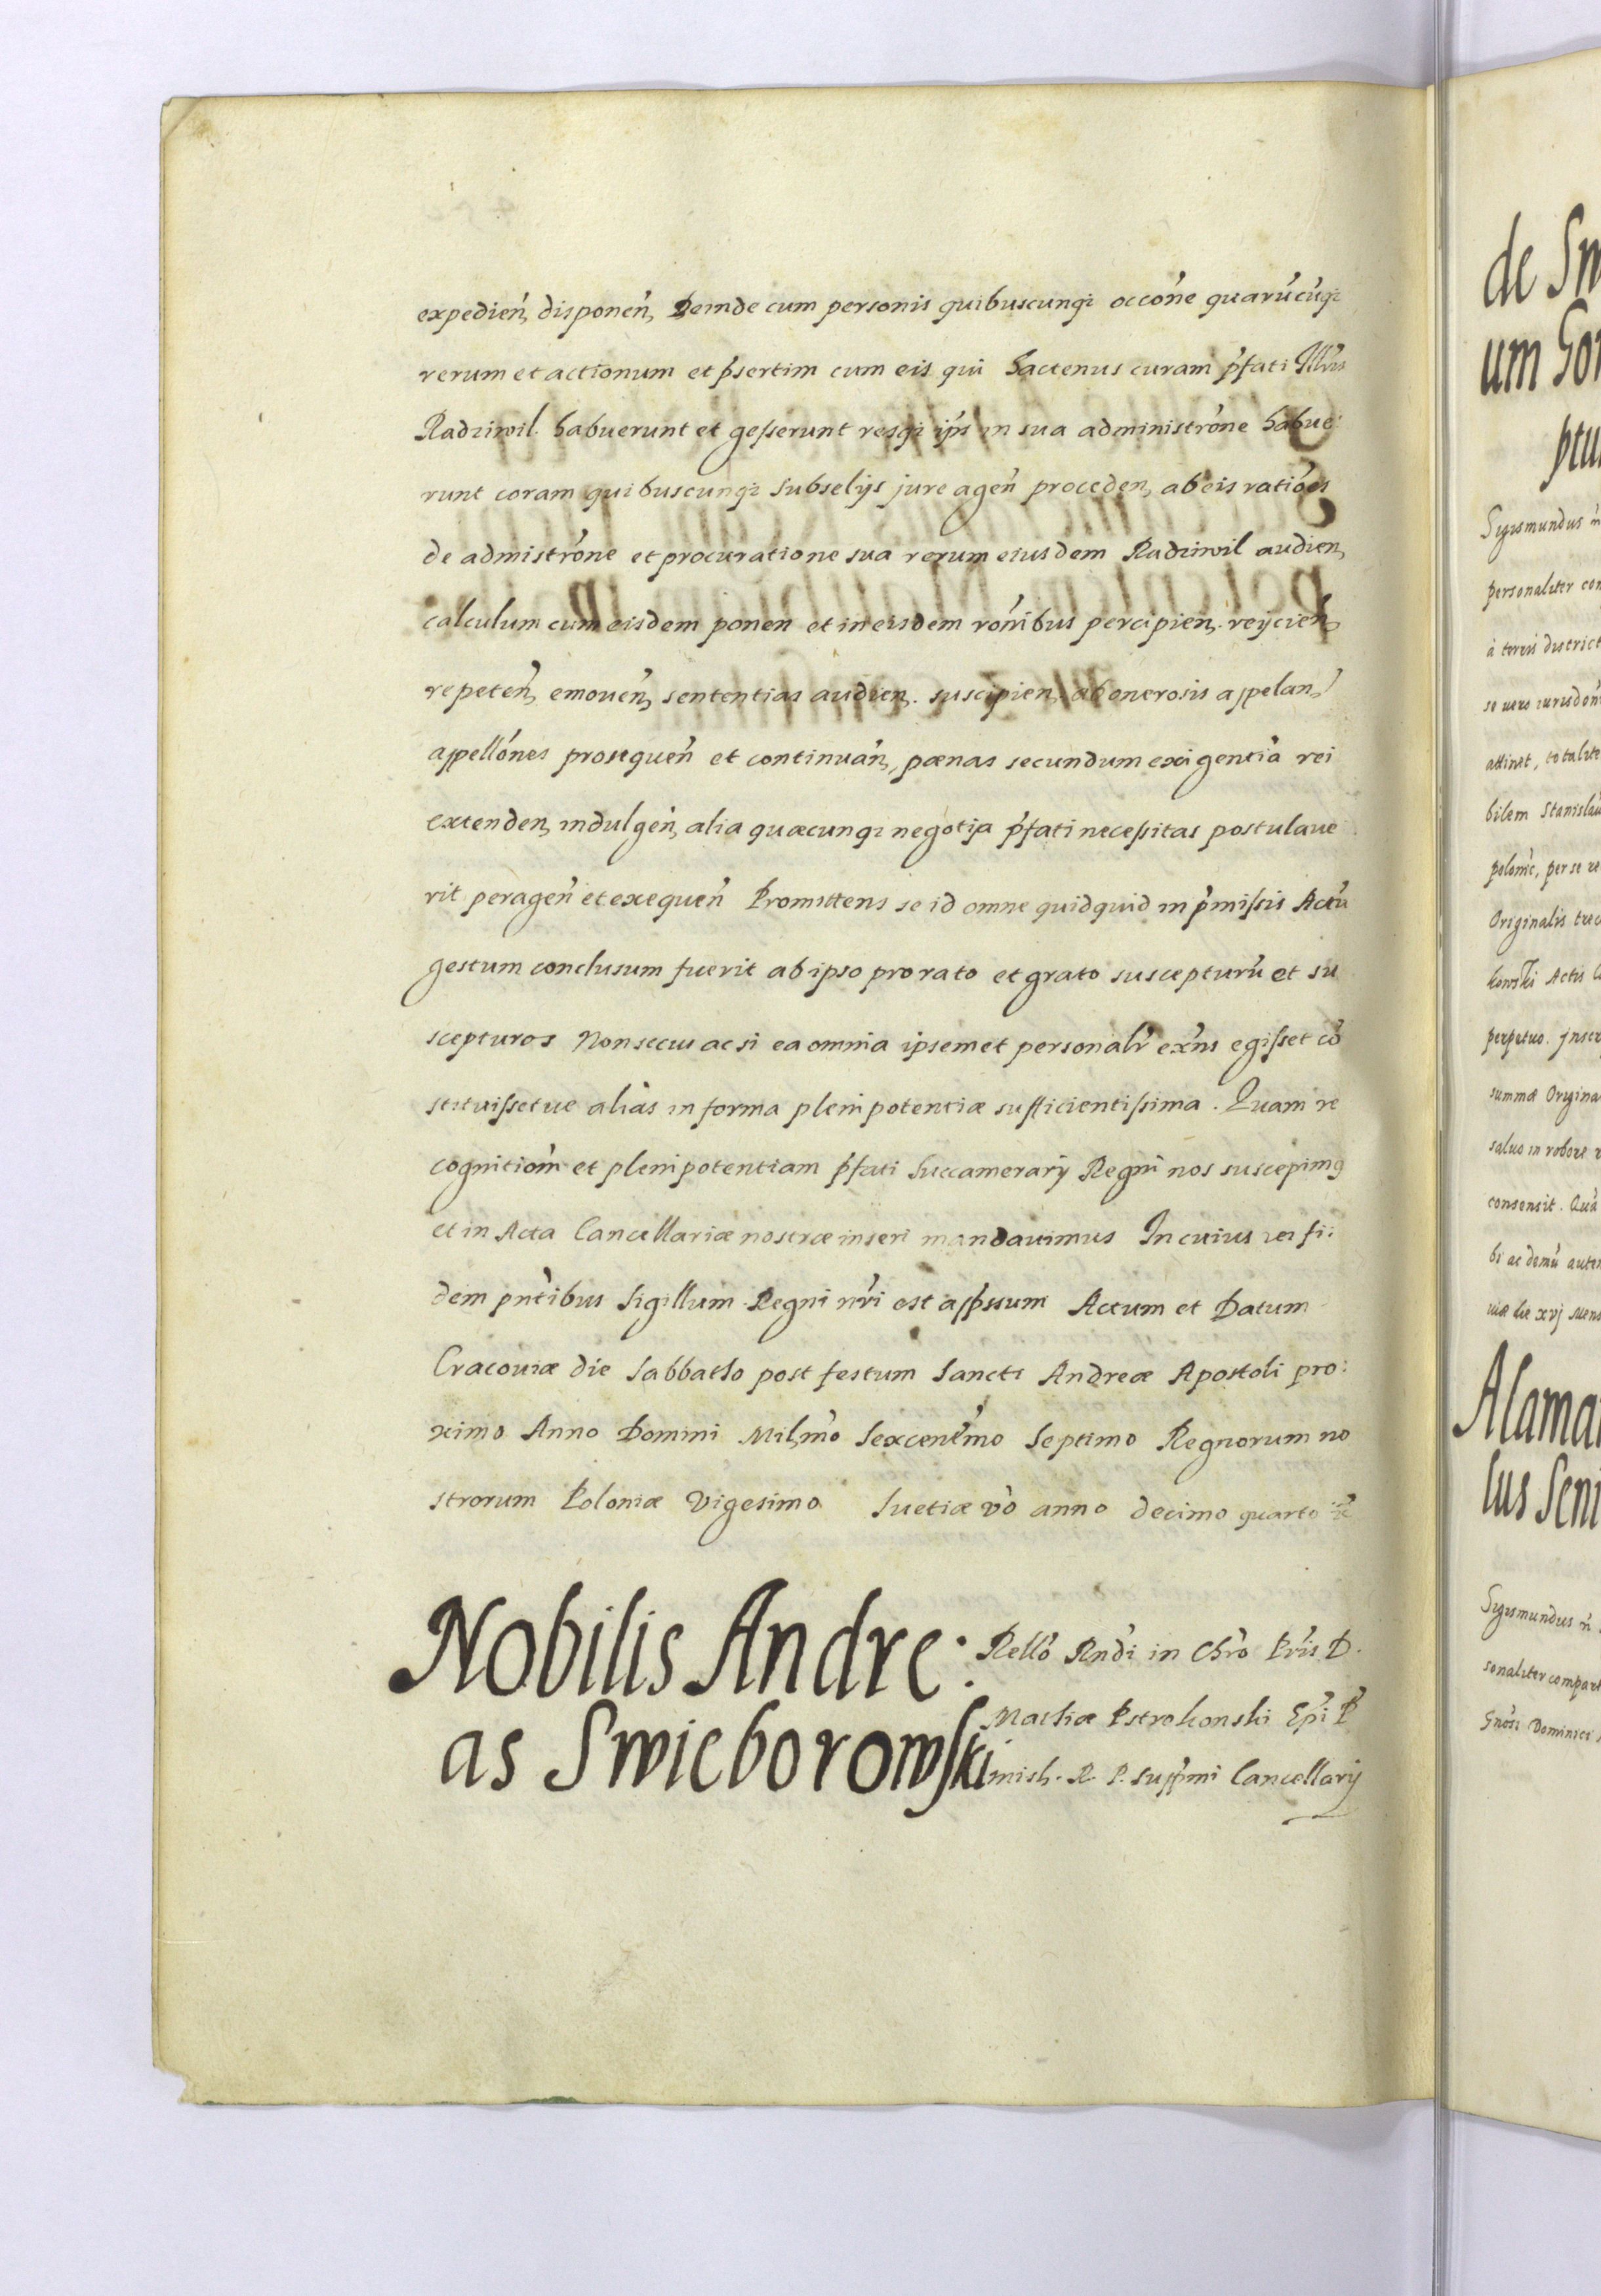 expedień, disponeń, Deinde cum personis quibuscunqz occōne quarūcūqz
rerum et actionum et p̃sertim cum eis qui hactenus curam p̃fati Illr̃is
Radziwil habuerunt et gesserunt resqz ip̃s in sua administrōne habue:
runt coram quibuscunqz Subselijs jure ageń proceden, ab eis ratiōes
de admistrōne et procuratione sua rerum eiusdem Radziwil audien,
calculum cum eisdem ponen et in eisdem rōnibus percipien. reijcień,
repeteń, emoueń, sententias audien. suscipien, ab onerosis appelan,
appellōnes prosequeń et continuań, pœnas secundum exigentiā rei
extenden, indulgeń, alia quæcunqz negotia p̃fati necessitas postulaue
rit perageń et exequeń Promittens se id omne quidquid in p̃missis Actū
gestum conclusum fuerit ab ipso pro rato et grato suscepturū et su
scepturos Non secus ac si ea omnia ipsemet personalr̃ exñs egisset cō
stituissetue aliàs in forma plenipotentiæ sufficientissima. Quam re
cognitiom̃ et plenipotentiam p̃fati Succamerarij Regni nos suscepimq
et in Acta Cancellariæ nostræ inseri mandauimus In cuius rei fi:
dem pñtibus Sigillum Regni nr̃i est app̃ssum Actum et Datum
Cracouiæ die Sabbatho post festum Sancti Andreæ Apostoli pro:
ximo Anno Domini Milmõ Sexcentẽmo Septimo Regnorum no
strorum Poloniæ Vigesimo Suetiæ võ anno decimo quarto
Nobilis Andre:
as Swieborowski
Rellō Rñdi in Chrõ Pr̃is D.
Mathiæ Pstrokonski Epĩ P
misl. R. P. Supp̃mi Cancellarij
de Sw
um Gor
ptu
Sigismundus
personaliter con
à terris district
attinet, totalite
bilem Stanislau
polonic, per se re
Originalis
kowski Actis
perpetuo. Inscr
summæ Origina
saluo in robore
consensit. Quā
Alama
lus Seni
Sigismundus
sonaliter compar
Dominici